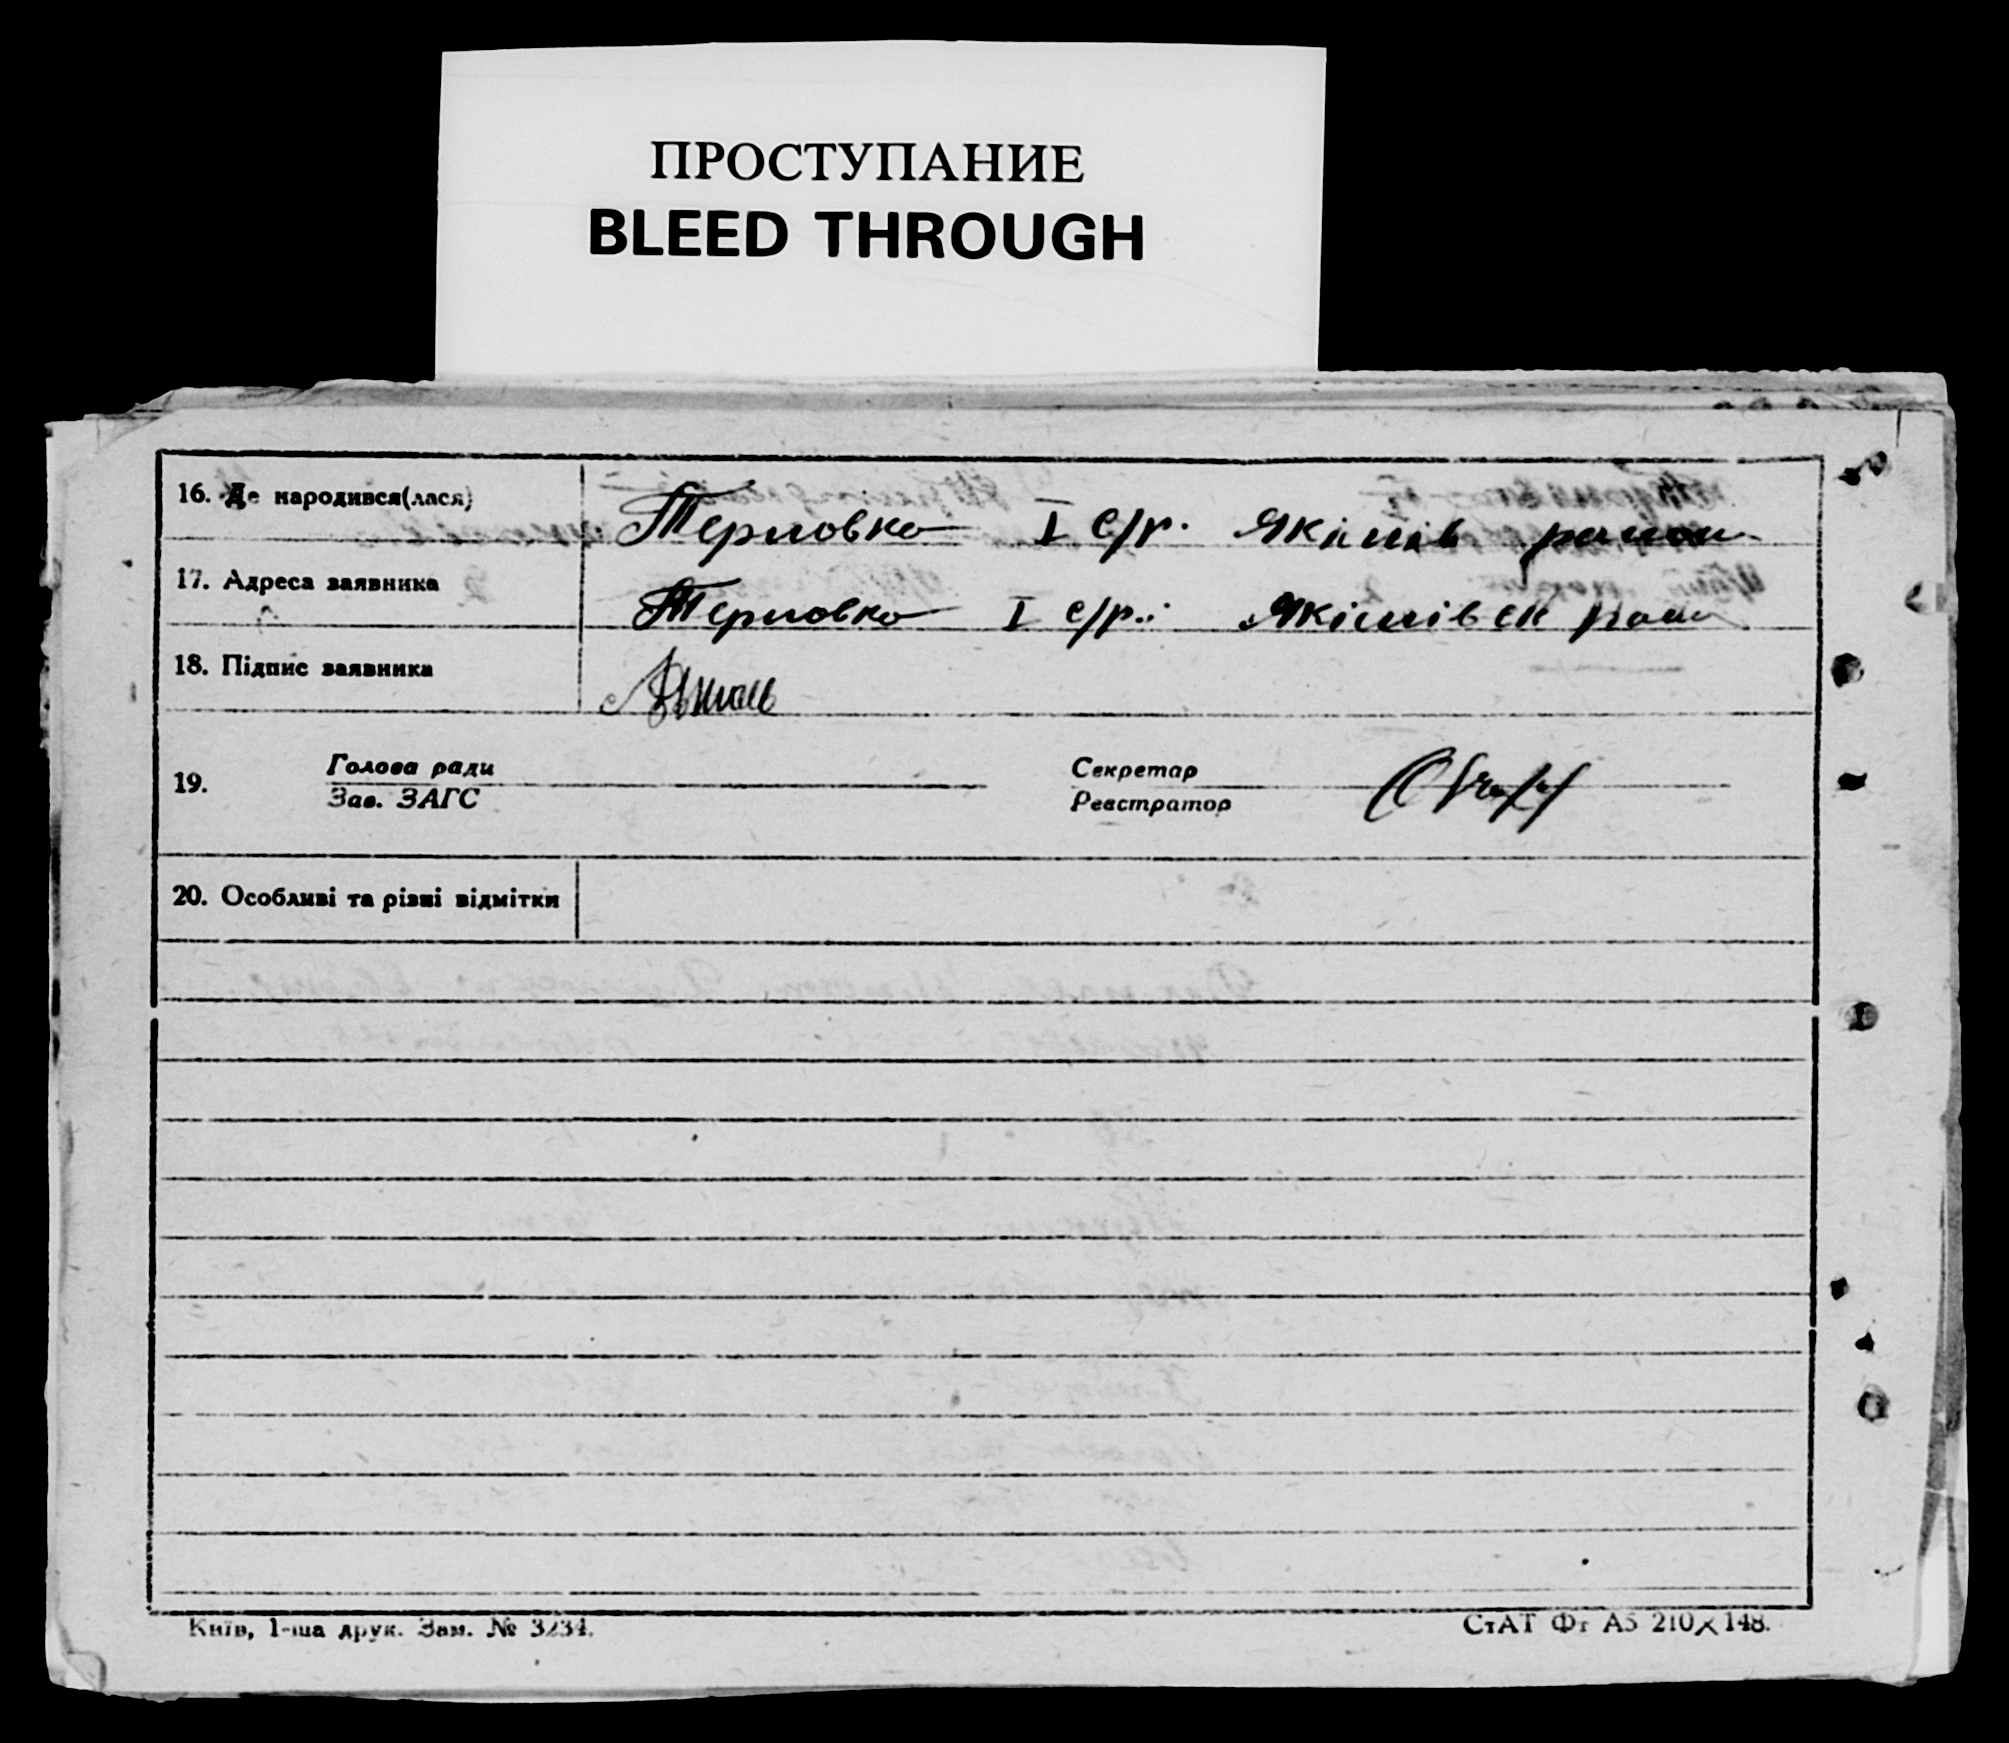 ПРОСТУПАНИЕ
BLEED THROUGH
16. Де народився(лася) Терловка I с/р. Якімів район
17. Адреса заявника Терловка I с/р. Якімівск район
18. Підпис заявника
19. Голова ради Секретар
Зав. ЗАГС Реєстратор
20. Особливі та різні відмітки
Київ, 1-ша друк. Зам. № 3234. СтАТ Фт А5 210×148.